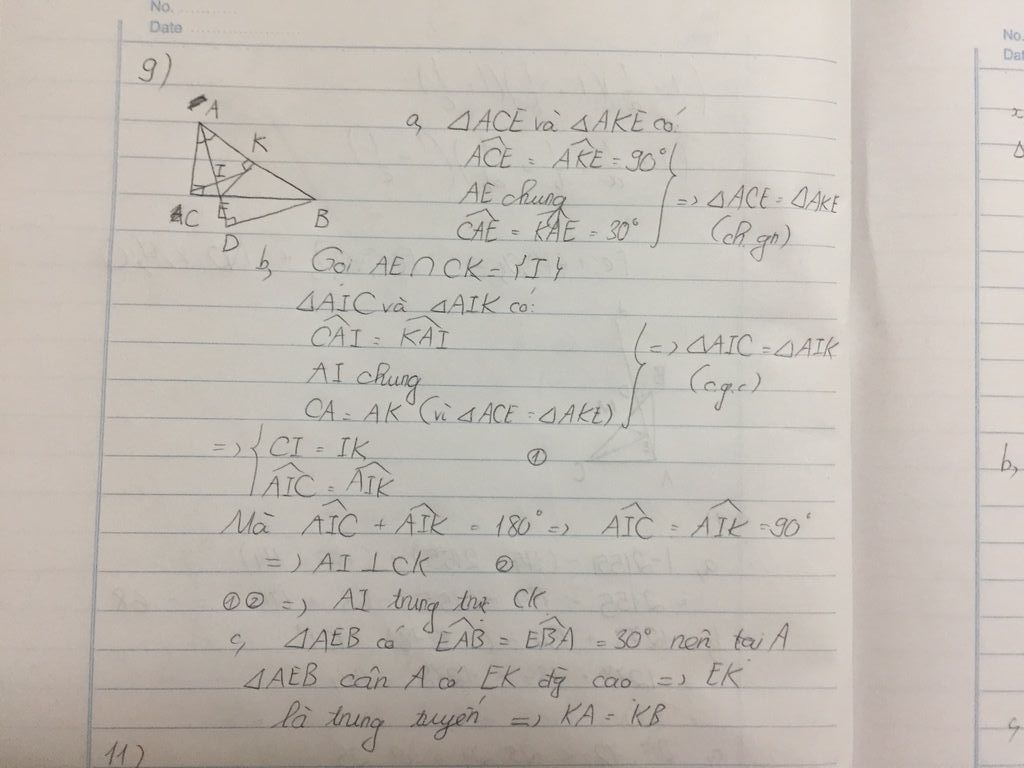 No.
Date
No.
Dat
9)
A
K
I
C
E
B
D
a, △ACE và △AKE có:
ACÊ = AKÊ = 90°
AE chung
CAÊ = KAÊ = 30°
=> △ACE = △AKE
(ch.gn)
b, Gọi AE ∩ CK = {I}
△AIC và △AIK có:
CAÎ = KAÎ
AI chung
CA = AK (vì △ACE = △AKE)
=> △AIC = △AIK
(c.g.c)
=> { CI = IK ①
AIC = AIK
Mà AIC + AIK = 180° => AIC = AIK = 90°
=> AI ⊥ CK ②
①② => AI trung trực CK
c, △AEB có EAB = EBA = 30° nên tại A
△AEB cân A có EK đg cao => EK
là trung tuyến => KA = KB
11)
x
△
b,
c,